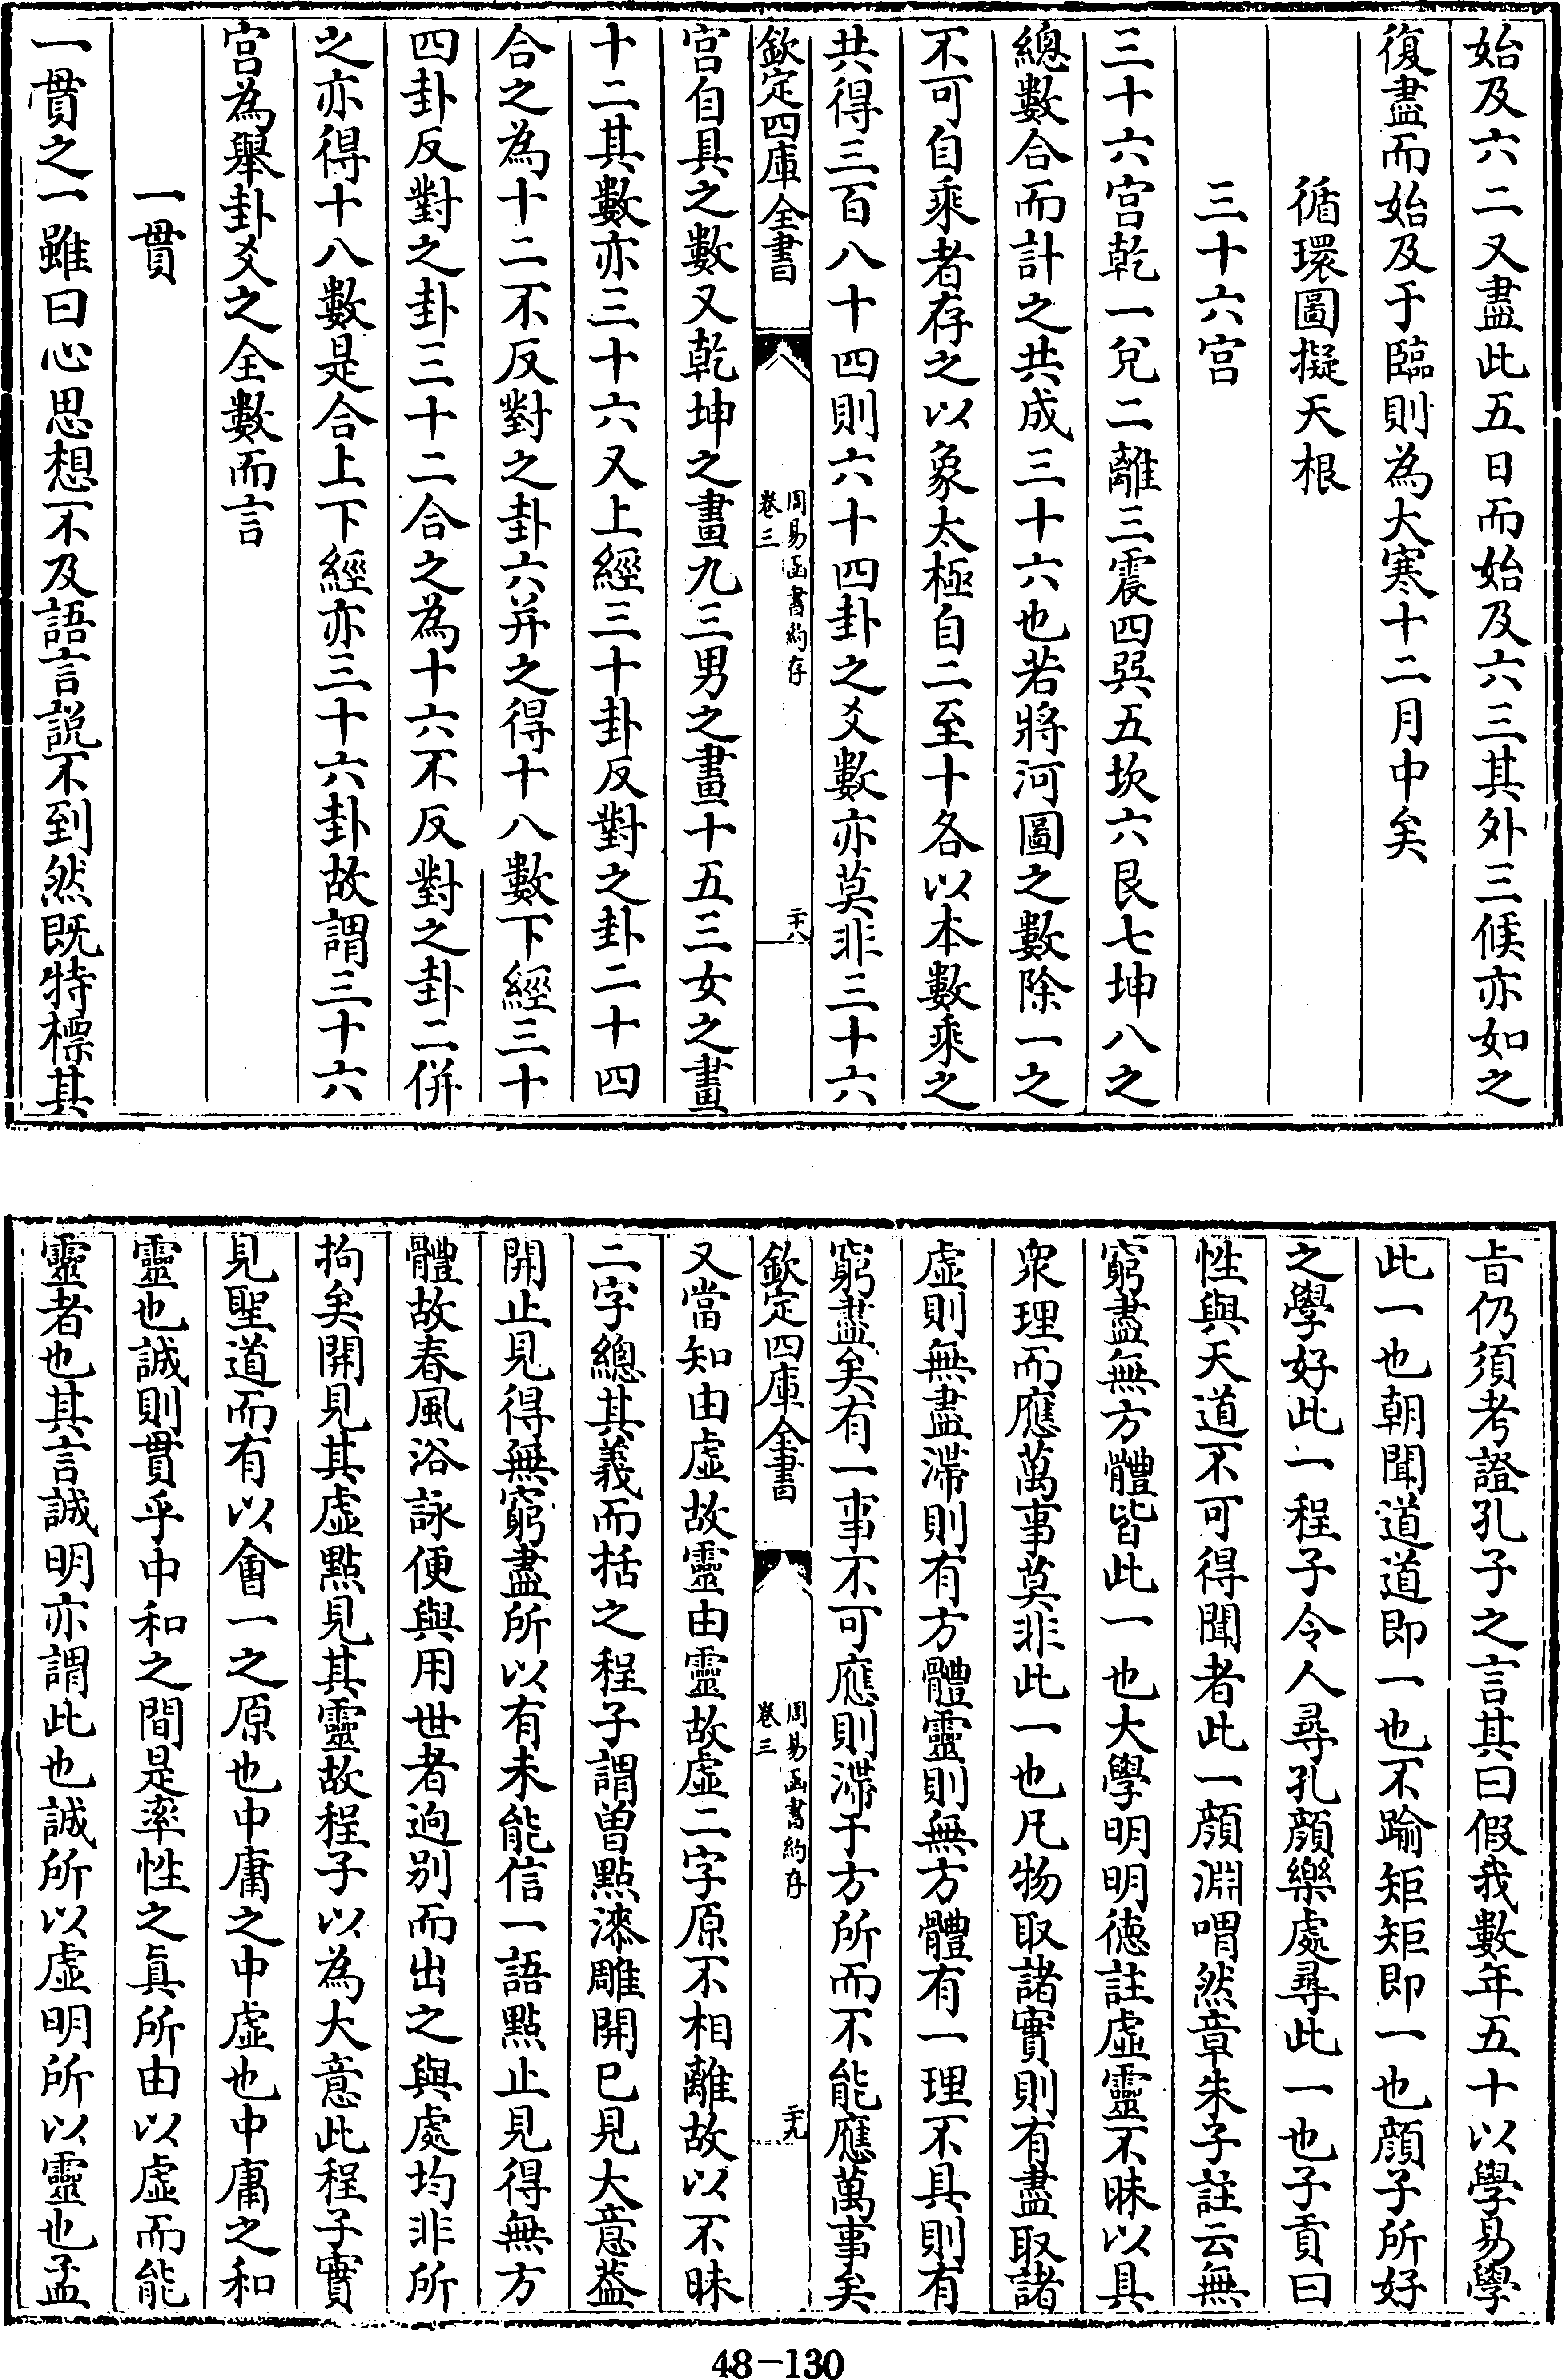 始及六二又盡此五日而始及六三其外三候亦如之
復盡而始及于臨則為大寒十二月中矣
循環圖擬天根
三十六宫
三十六宫乾一兌二離三震四巽五坎六艮七坤八之
總數合而計之共成三十六也若將河圖之數除一之
不可自乘者存之以象太極自二至十各以本數乘之
共得三百八十四則六十四卦之爻數亦莫非三十六
欽定四庫全書
周易函書約存
卷三
二十八
宫自具之數又乾坤之畫九三男之畫十五三女之畫
十二其數亦三十六又上經三十卦反對之卦二十四
合之為十二不反對之卦六并之得十八數下經三十
四卦反對之卦三十二合之為十六不反對之卦二併
之亦得十八數是合上下經亦三十六卦故謂三十六
宫為舉卦爻之全數而言
一貫
一貫之一雖曰心思想不及語言説不到然既特標其
㫖仍須考證孔子之言其曰假我數年五十以學易學
此一也朝聞道道即一也不踰矩矩即一也顔子所好
之學好此一程子令人尋孔顔樂處尋此一也子貢曰
性與天道不可得聞者此一顔淵喟然章朱子註云無
窮盡無方體皆此一也大學明明徳註虛靈不昧以具
衆理而應萬事莫非此一也凡物取諸實則有盡取諸
虛則無盡滯則有方體靈則無方體有一理不具則有
窮盡矣有一事不可應則滯于方所而不能應萬事矣
欽定四庫全書
周易函書約存
卷三
二十九
又當知由虛故靈由靈故虛二字原不相離故以不昧
二字總其義而括之程子謂曽點漆雕開已見大意葢
開止見得無窮盡所以有未能信一語點止見得無方
體故春風浴詠便與用世者逈别而出之與處均非所
拘矣開見其虛點見其靈故程子以為大意此程子實
見聖道而有以會一之原也中庸之中虛也中庸之和
靈也誠則貫乎中和之間是率性之眞所由以虛而能
靈者也其言誠明亦謂此也誠所以虛明所以靈也孟
48-130